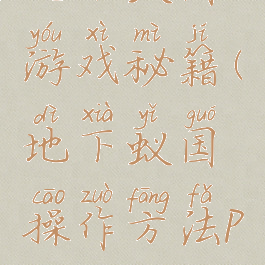 yóu xì mì jí
游戏秘籍(
dì xià yǐ guó
地下蚁国
cāo zuò fāng fǎ
操作方法P